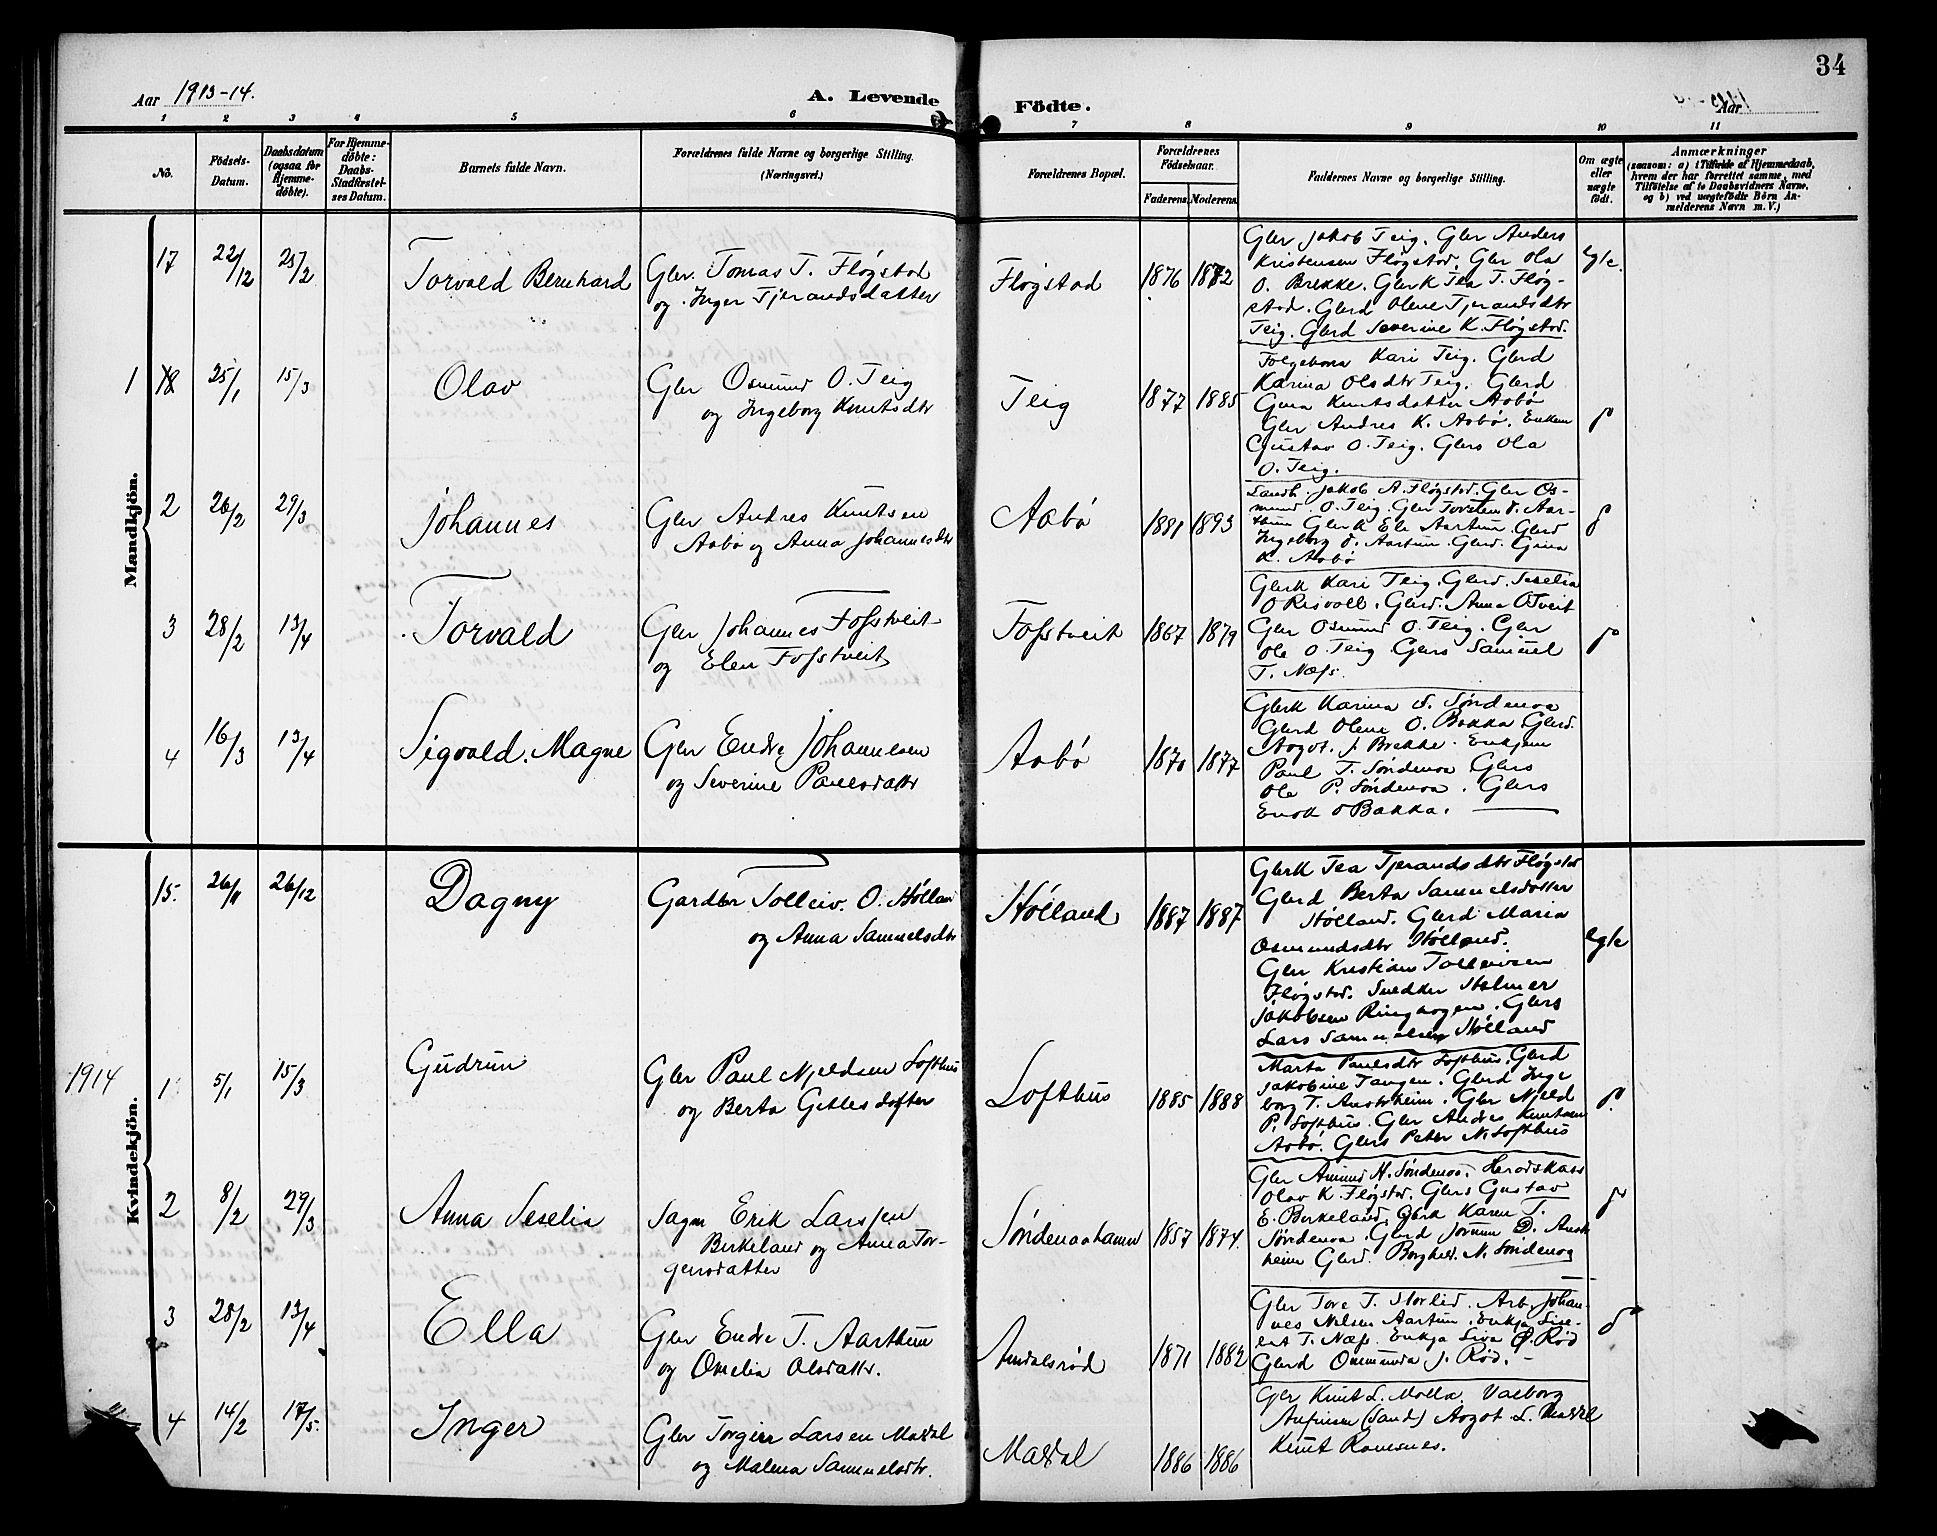 34
Aar 1913-14.
A. Levende Födte.
Aar
1 2 3 4 5 6 7 8 9 10 11
No.
Födsels-Datum.
Daabsdatum (ogsaa for Hjemme-döbte).
For Hjemme-döbte: Daabs-Stadfæstel-ses Datum.
Barnets fulde Navn.
Forældrenes fulde Navne og borgerlige Stilling.
(Næringsvei.)
Forældrenes Bopæl.
Forældrenes Födselsaar.
Faderens. Moderens.
Faddernes Navne og borgerlige Stilling.
Om ægte eller uægte födt.
Anmærkninger
(saasom: a) i Tilfælde af Hjemmedaab,
hvem der har forrettet samme, med
Tilföielse af to Daabsvidners Navne,
og b) ved uægtefödte Börn An-
melderens Navn m. V.)
Mandkjön.
17 22/12 25/2 Torvald Bernhard
Gbr. Tomas T. Fløgstad
og Inger Tjerandsdatter
Fløgstad 1876 1872
Gbr Jakob Teig. Gbr Anders
Kristensen Fløgstad. Gbr Ola
O. Brekke. Gbrk Tea T. Fløg-
stad. Gbrd Olene Tjerandsdtr
Teig. Gbrd Severine K. Fløgstad.
egte.
1 18 25/1 15/3 Olav
Gbr Osmund O. Teig
og Ingeborg Knutsdtr
Teig 1877 1885
Folgekona Kari Teig. Gbrd
Karina Olsdtr Teig. Gbrd
Gina Knutsdatter Aabø
Gbr Andres K. Aabø. Enkem
Gustav O. Teig. Gbrs Ola
O. Teig.
2 26/2 29/3 Johannes
Gbr Andres Knutsen
Aabø og Anna Johannesdtr
Aabø 1881 1893
Landh. Jakob A. Fløgstad. Gbr Os-
mund O. Teig. Gbr Torsten O. Aar-
thun Gbrk Ele Aartun. Gbrd
Ingeborg O. Aartun. Gbrd. Gina
K. Aabø
3 28/2 13/4 Torvald
Gbr Johannes Fosstveit
og Elen Fosstveit
Fosstveit 1867 1879
Gbrk Kari Teig. Gbrd. Seselia
O Risvoll. Gbrd. Anna O Tveit
Gbr Osmund O. Teig. Gbr
Ole O. Teig Gbrs Samuel
T. Næss.
4 16/3 13/4 Sigvald. Magne
Gbr Endre Johannesen
og Severine Paulsdattr
Aabø 1870 1877
Gbrk Karina S. Søndenaa
Gbrd Olene O. Bakka Gbrd.
Aagot. J. Brekke. Enkjem
Paul T. Søndenaa Gbrs
Ole P. Søndenaa. Gbrs
Enok O Bakka.
Kvindekjön.
15. 26/11 26/12 Dagny
Gardbr Tolleiv. O. Hølland
og Anna Samuelsdtr
Hølland 1887 1887
Gbrk Tea Tjerandsdtr Fløgstad
Gbrd Berta Samuelsdatter
Hølland. Gbrd Maria
Osmundsdtr Hølland.
Gbr Kristian Tolleivsen
Fløgstad. Snedker Halmer
Jakobsen Ringhagen. Gbrs
Lars Samuelsen Hølland
egte
1914
1 5/1 15/3 Gudrun
Gbr Paul Njeldsen Lofthus
og Berta Gitlesdatter
Lofthus 1885 1888
Marta Paulsdtr Lofthus. Gbrd
Jakobine Tangen. Gbrd Inge
borg T. Austrheim. Gbr Njeld
P. Lofthus. Gbr Andres Knutsen
Aabø. Gbrs Peter N. Lofthus
2 8/2 29/3 Anna Seselia
Sagm Erik Larssen
Birkeland og Anna Tor-
geirsdatter
Søndenaahamn 1857 1874.
Gbr Amund N. Søndenaa. Herodskass
Olav K. Fløgstad. Gbrs Gustav
E. Birkeland. Gbrk Karen T.
Søndenaa. Gbrd Jorunn D. Austr
heim Gbrd. Borghild. N. Søndenaa
3 28/2 13/4 Ella
Gbr Endre T. Aarthun
og Omelia Olsdattr.
Amdalsrød 1871 1882
Gbr Tore T. Storlid. Arb. Johan-
nes Nilsen Aartun. Enkja Lise-
bet T. Næss. Enkja Siva O. Rød
Gbrd Ommunda J. Rød.
4 14/2 17/5. Inger
Gbr Torgeir Larsen Maldal
og Malena Samuelsdtr.
Maldal 1886 1886
Gbr Knut L. Molla, Valborg
Anfinsen (Sand) Aagot L. Maldal
Knut Ramsnes.